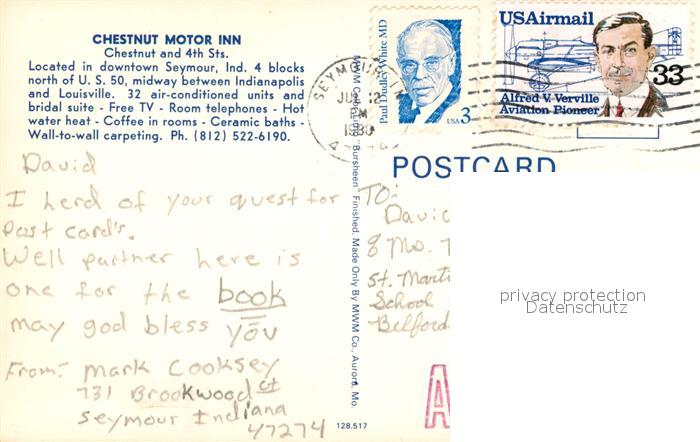 CHESTNUT MOTOR INN
Chestnut and 4th Sts.
Located in downtown Seymour, Ind. 4 blocks
north of U. S. 50, midway between Indianapolis
and Louisville. 32 air-conditioned units and
bridal suite - Free TV - Room telephones - Hot
water heat - Coffee in rooms - Ceramic baths -
Wall-to-wall carpeting. Ph. (812) 522-6190.
David
I herd of your quest for
Post card's.
Well partner here is
one for the book
may god bless you
From: Mark Cooksey
731 Brookwood ct
Seymour Indiana
47274
"Bursheen" Finished. Made Only By MWM Co., Aurora, Mo.
128.517
SEYMOUR
Paul Dudley White MD
USA 3
USAirmail
33
Alfred V. Verville
Aviation Pioneer
POSTCARD
TO:
David
8 Mo.
St. Marti
School
Belford
A
privacy protection
Datenschutz